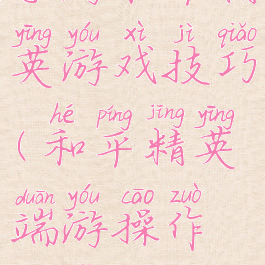 yīng yóu xì jì qiǎo
英游戏技巧
hé píng jīng yīng
(和平精英
duān yóu cāo zuò
端游操作